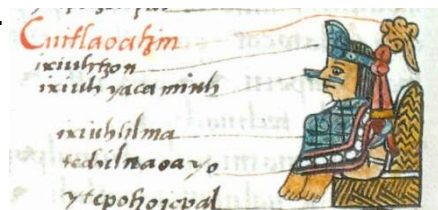 Cuitlaoatzin
ixiuhtzon
ixiuh yaca minh
ixiuhtilma
techilnaoa yo
ytepotzoicpal